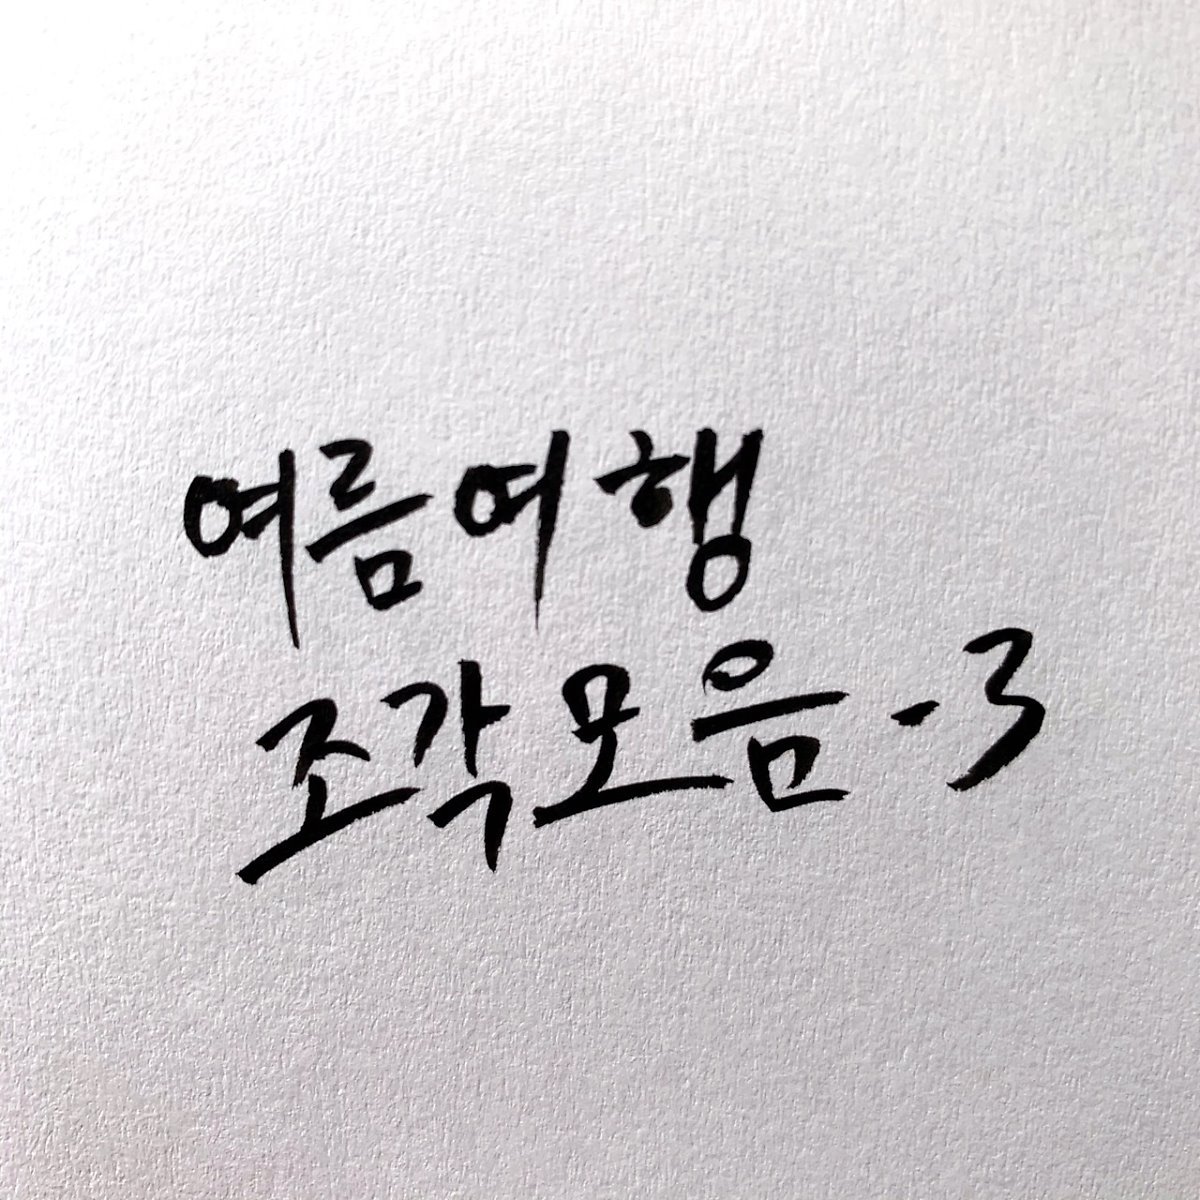 여름여행
조각모음-3